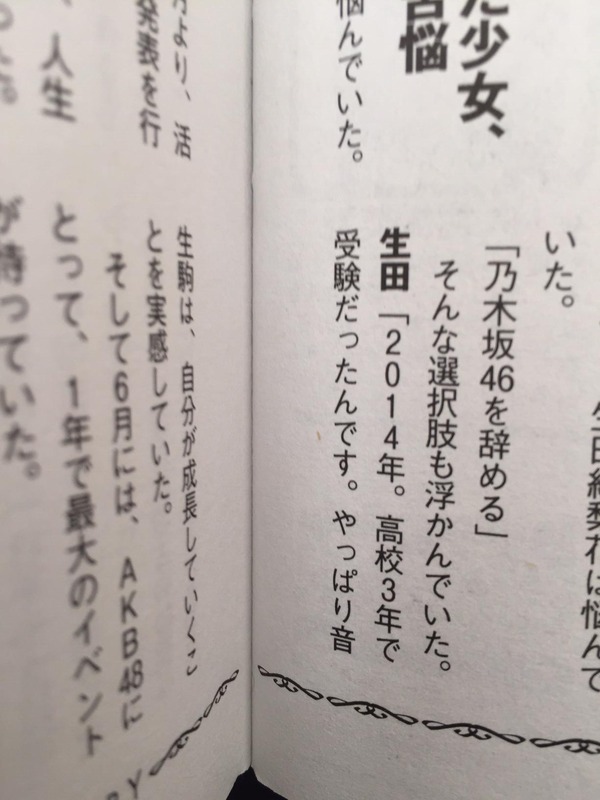 た少女、
苦悩
悩んでいた。
生田絵梨花は悩んで
いた。
「乃木坂46を辞める」
そんな選択肢も浮かんでいた。
生田「2014年。高校3年で
受験だったんです。やっぱり音
より、活
発表を行
、人生
った。
生駒は、自分が成長していくこ
とを実感していた。
そして6月には、AKB48に
とって、1年で最大のイベント
が待っていた。
RY